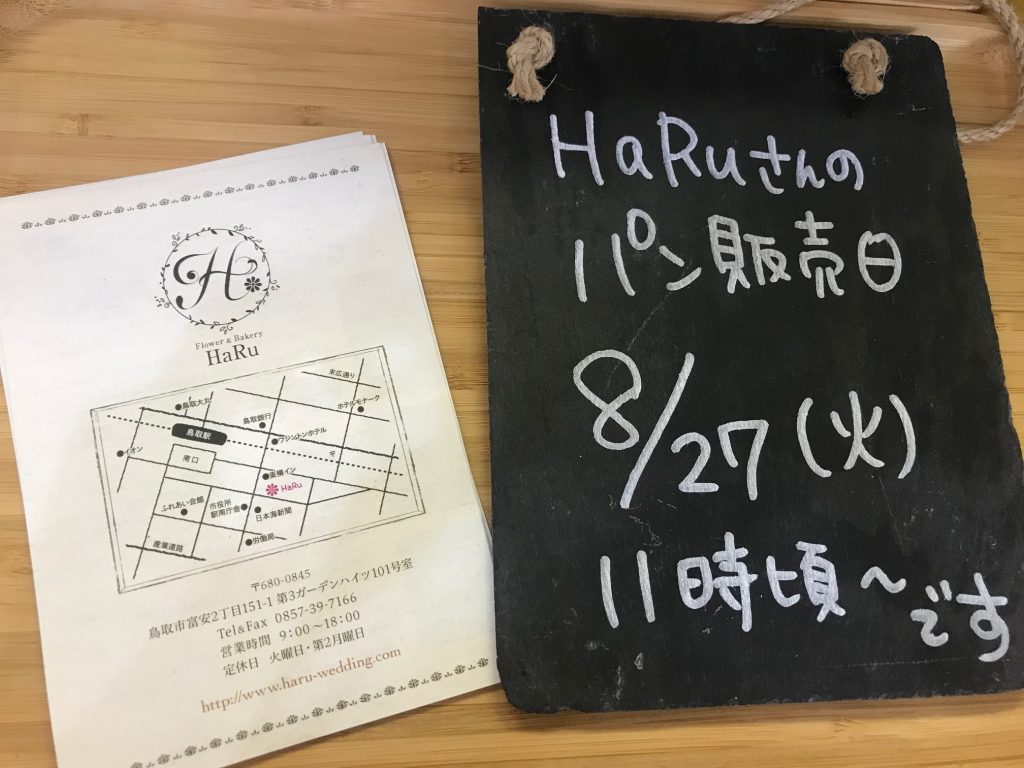 H
Flower & Bakery
HaRu
末広通り
鳥取大丸
ホテルモナーク
鳥取銀行
鳥取駅
ワシントンホテル
イオン
南口
〒
東横イン
HaRu
ふれあい会館
市役所
駅南庁舎
日本海新聞
労働局
産業道路
〒680-0845
鳥取市富安2丁目151-1 第3ガーデンハイツ101号室
Tel&Fax 0857-39-7166
営業時間 9:00～18:00
定休日 火曜日・第2月曜日
http://www.haru-wedding.com
HaRuさんの
パン販売日
8/27(火)
11時頃～です